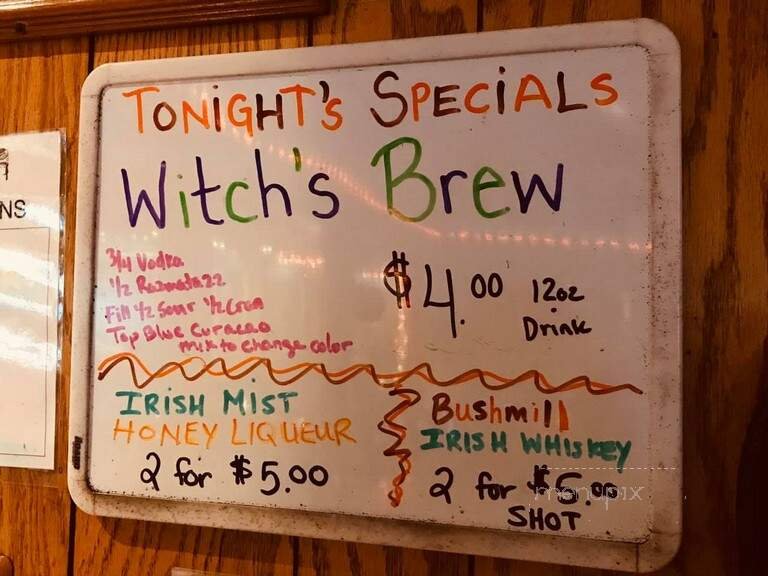 TONiGHT's SPECiALS
Witch's Brew
3/4 Vodka
1/2 Razmatazz
Fill 1/2 Sour 1/2 Cran
Top Blue Curacao
mix to change color
$4.00 12oz
Drink
IRISH MIST
HONEY LIQUEUR
2 for $5.00
Bushmill
IRISH WHISKEY
2 for $6.00
SHOT
NS
menupix